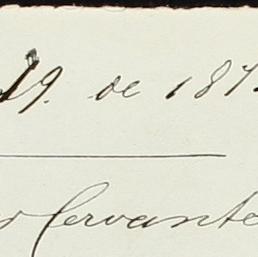 19. de 187
Cervante